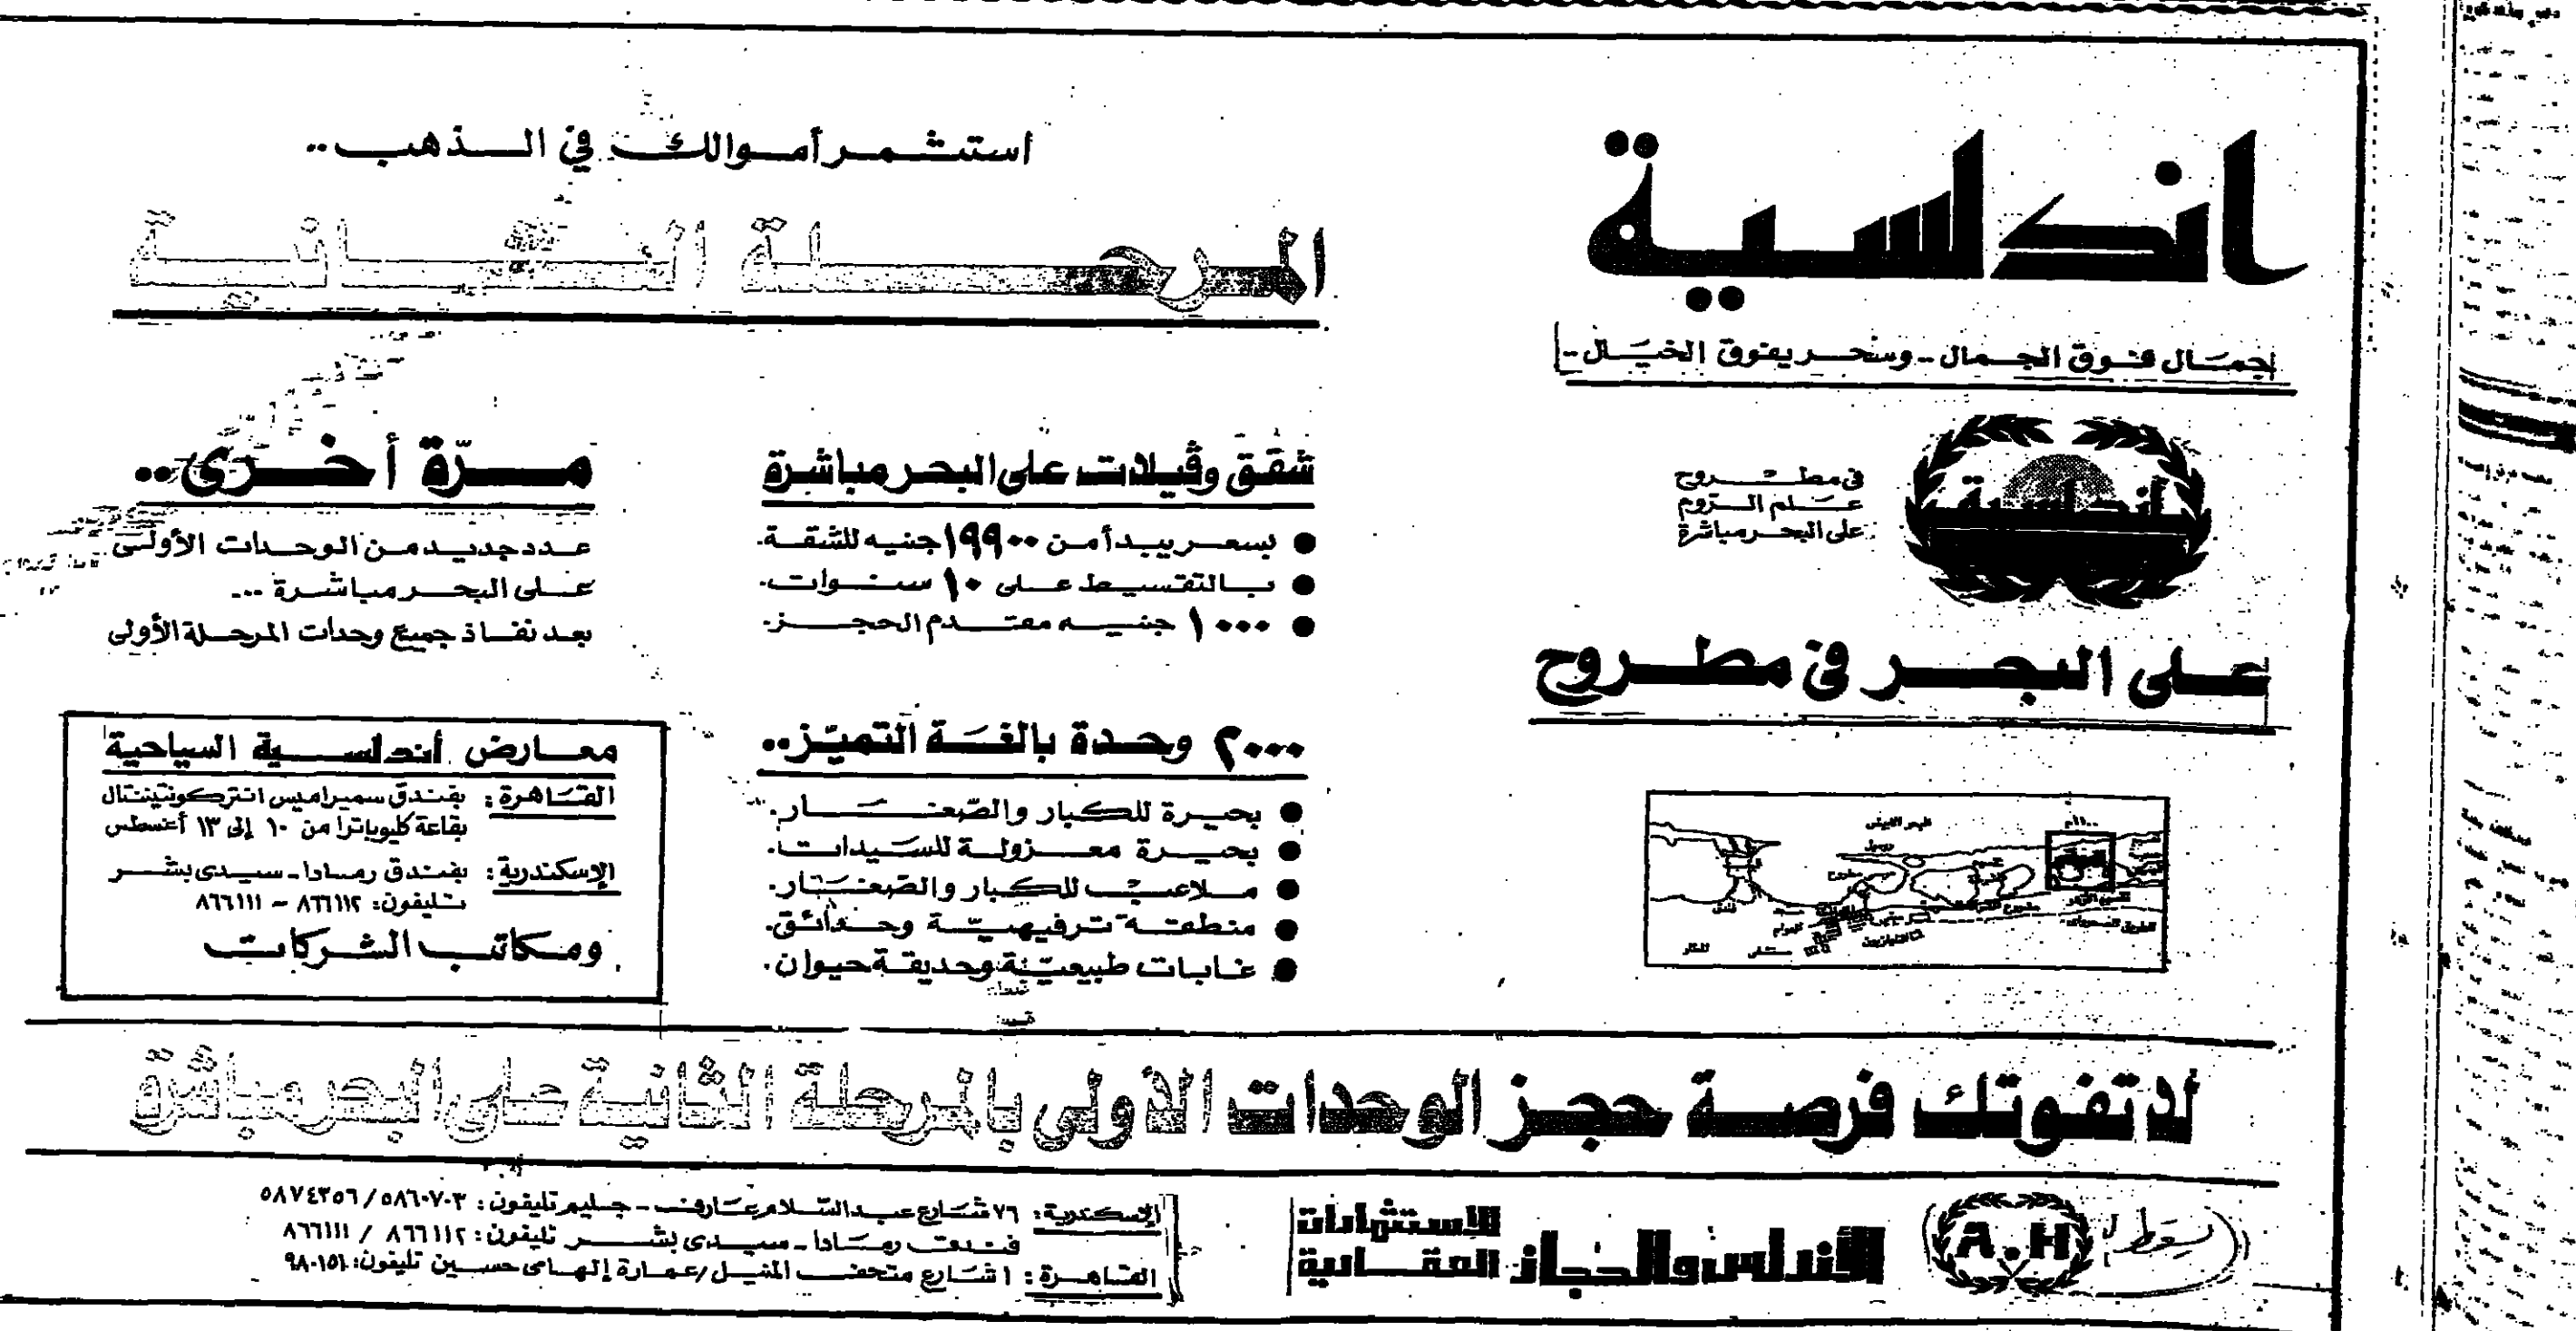 اندلسية
جمال فوق الجمال - وسحر يفوق الخيال -
أندلسية
فى مطروح
علم الروم
على البحر مباشرة
على البحر فى مطروح
استثمر أموالك في الذهب ..
المرحلة الثانية
شقق وڤيلات على البحر مباشرة
● بسعر يبدأ من ١٩٩٠٠ جنيه للشقة.
● بالتقسيط على ١٠ سنوات.
● ١٠٠٠ جنيه مقدم الحجز.
٢٠٠٠ وحدة بالغة التميّز ..
● بحيرة للكبار والصّغار.
● بحيرة معزولة للسّيدات.
● ملاعب للكبار والصّغار.
● منطقة ترفيهيّة وحدائق.
● غابات طبيعيّة وحديقة حيوان.
مرّة أخرى ..
عدد جديد من الوحدات الأولى
على البحر مباشرة ...
بعد نفاذ جميع وحدات المرحلة الأولى
معارض أندلسية السياحية
القاهرة: بفندق سميراميس انتركونتيننتال
بقاعة كليوباترا من ١٠ إلى ١٣ أغسطس
الإسكندرية: بفندق رمادا - سيدى بشر
تليفون: ٨٦٦١١٢ - ٨٦٦١١١
ومكاتب الشركات
لا تفوتك فرصة حجز الوحدات الأولى بالمرحلة الثانية على البحر مباشرة
A.H
الأندلس والحجاز
للإستثمارات
العقارية
الإسكندرية: ٧٦ شارع عبد السّلام عارف - جليم تليفون: ٥٨٦٠٧٠٣ / ٥٨٧٤٣٥٦
فندق رمادا - سيدى بشر تليفون: ٨٦٦١١٢ / ٨٦٦١١١
القاهرة: ١ شارع متحف المنيل / عمارة إلهامى حسين تليفون: ٩٨٠١٥١